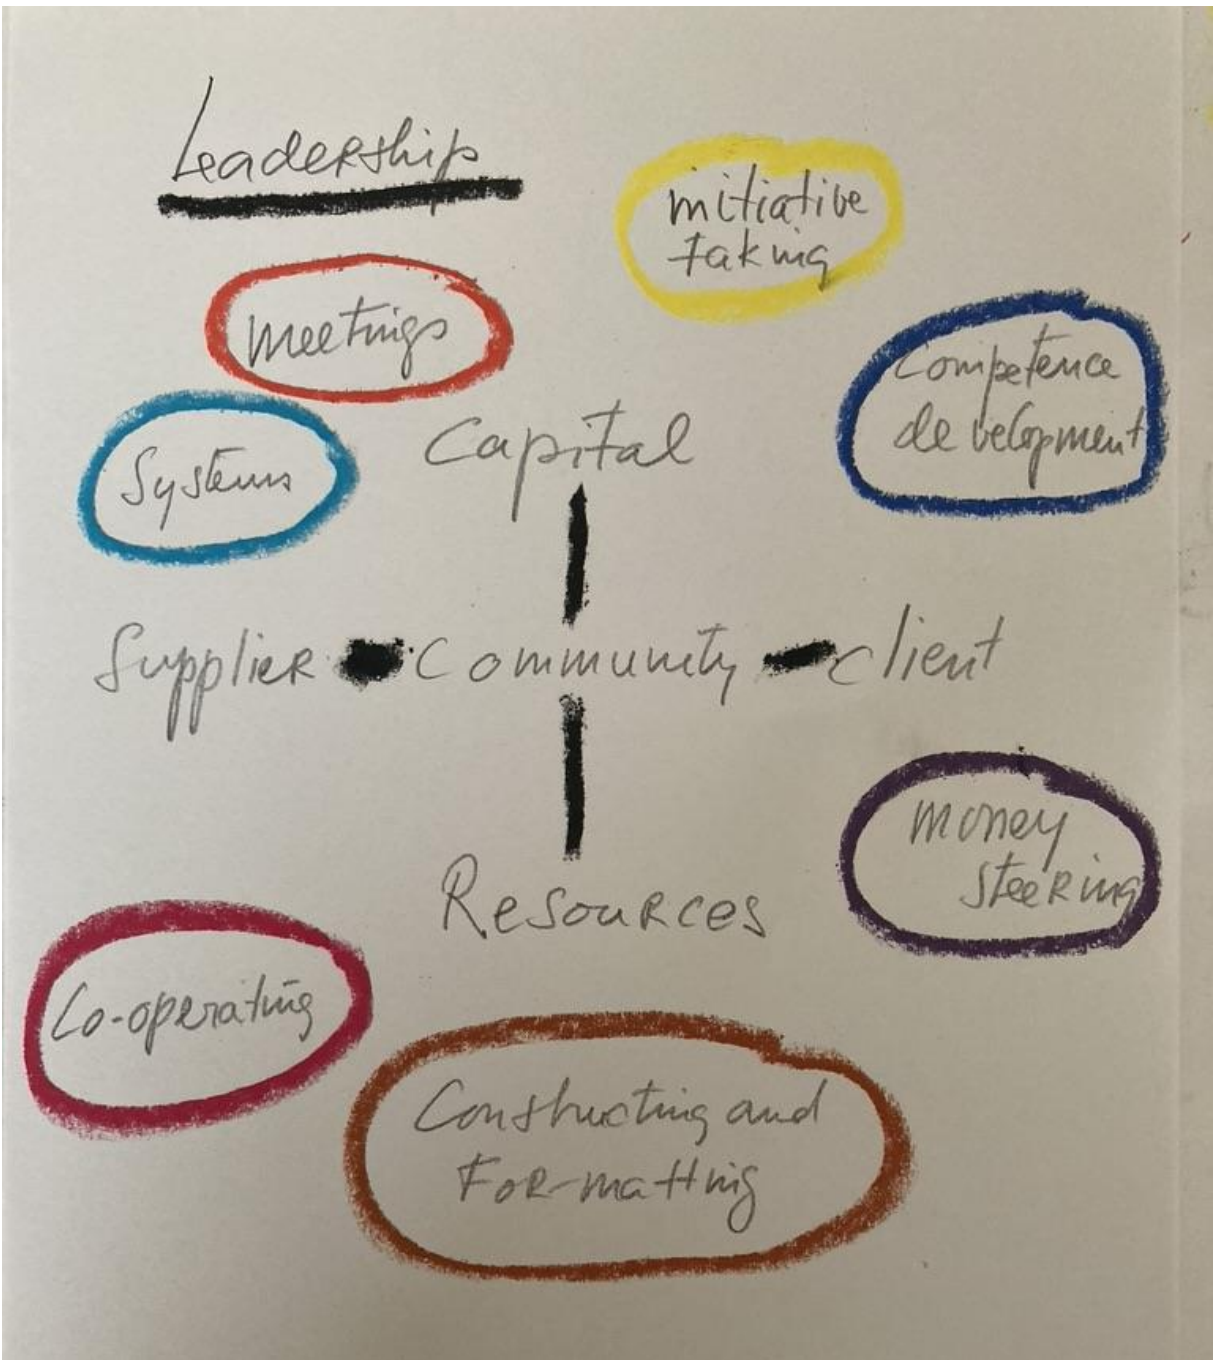 Leadership
initiative
taking
meetings
Competence
development
Capital
Systems
Supplier Community client
money
steering
Resources
Co-operating
Constructing and
For-matting